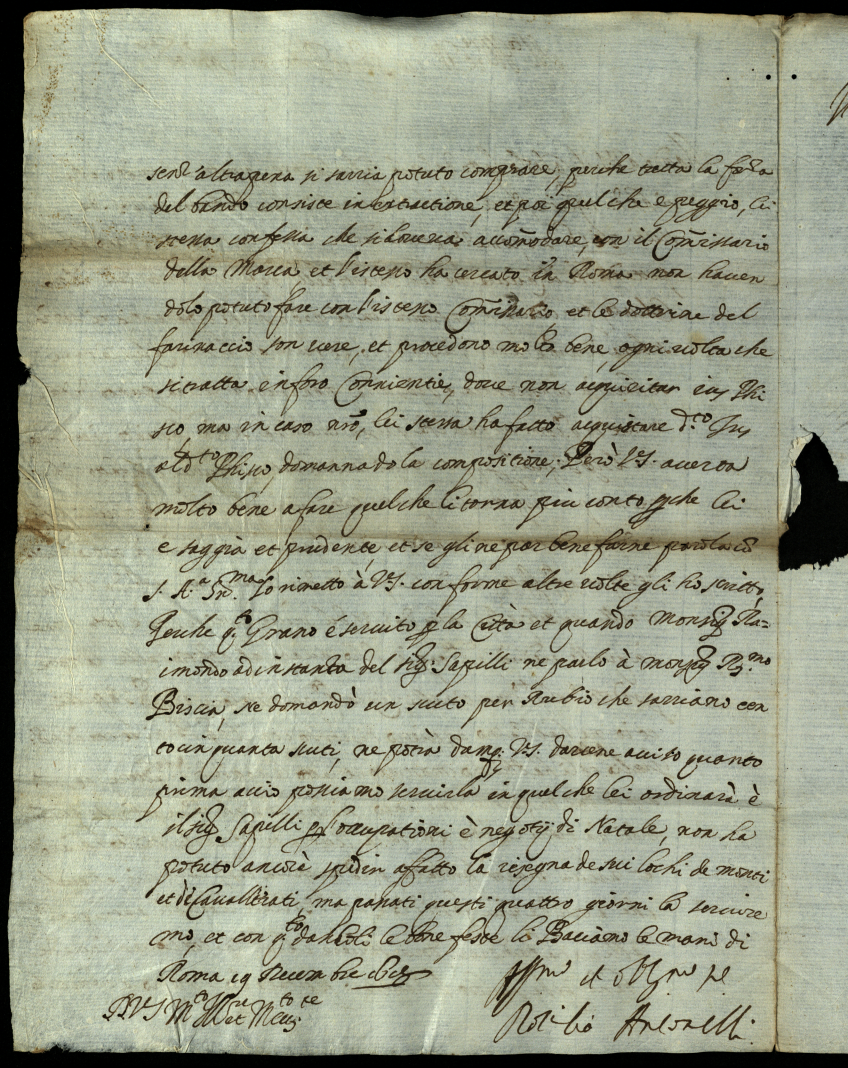 altra pena si sarria potuto comprare, perche tutta la forza
del bando consiste in extractione, et poi quel che e peggio, lei
stessa confessa che si doveria accom̃odare, con il Com̃issario
della Marca et l'istesso ha cercato in Roma non haven
dolo potuto fare con l'istesso Com̃issario et le dottrine del
farinaccio son vere, et procedono molto bene, ogni volta che
si tratta in foro Conscientie, dove non acquiritur ius
ma in caso nr̃o, lei stessa ha fatto acquistare d.to Jus
al d.to domannadola compositione; Però V.S.
molto bene a fare quel che li torna piu conto perche lei
e saggia et prudente, et se gli ne par bene farne parola cõ
S. A.a Ser.ma lo rimetto à V.S. conforme altre volte gli ho scritto,
Perche q.to Grano é servito per la Città et quando Monsig.r Ra=
imondo ad instantia del sig.r Sapilli ne parlo à monsig.r R.mo
Biscia, ne domandò un scuto per Rubio che sarriano cen
to cinquanta scuti, ne potrà V.S. darcene aviso quanto
prima acciò possiamo servirla in quel che lei ordinarà è
il sig.r Sapilli per l'occupationi è negotij di Natale, non ha
potuto ancora spedir affatto la resegna de sui lochi de monti
et di Cavallirati ma passati questi quattro giorni la servire
mo, et con q.to dandoli le bone feste li Baciamo le mani di
Roma 19 Decembre
D V S M.to Ill.re et M.to
Antonelli